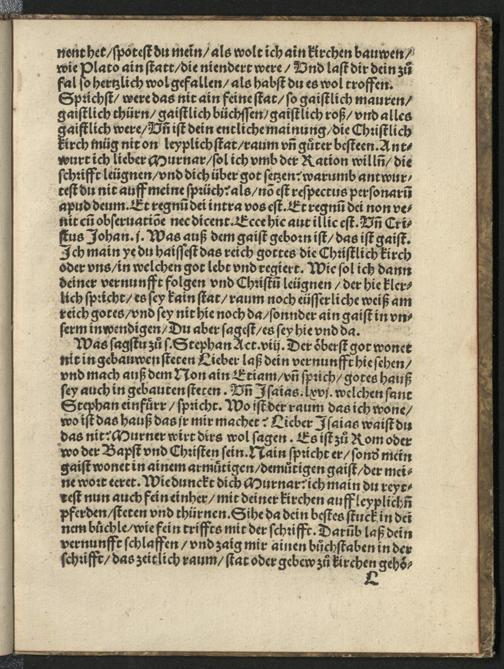 nent het/spotest du mein/als wolt ich ain kirchen bauwen/
wie Plato ain statt/die niendert were/Vnd last dir dein zů
fal so hertzlich wol gefallen/als habst du es wol troffen.
Sprichst/were das nit ain feine stat/so gaistlich mauren/
gaistlich thürn/gaistlich büchssen/gaistlich roß/vnd alles
gaistlich were/Vñ ist dein entliche mainung/die Christlich
kirch müg nit on leyplich stat/raum vñ güter besteen. Ant-
wurt ich lieber Murnar/sol ich vmb der Ration willñ/die
schrifft leügnen/vnd dich über got setzen? warumb antwur-
test du nit auff meine sprüch? als/nõ est respectus personarũ
apud deum. Et regnũ dei intra vos est. Et regnũ dei non ve-
nit cũ obseruatiõe nec dicent. Ecce hic aut illic est. Vñ Cri-
stus Johan. j. Was auß dem gaist geborn ist/das ist gaist.
Ich main ye du haissest das reich gottes die Christlich kirch
oder vns/in welchen got lebt vnd regiert. Wie sol ich dann
deiner vernunfft folgen vnd Christũ leügnen/der hie kler-
lich spricht/es sey kain stat/raum noch eüsserliche weiß am
reich gottes/vnd sey nit hie noch da/sonnder ain gaist in vn-
serm inwendigen/Du aber sagest/es sey hie vnd da.
Was sagstu zů s. Stephan Act. viij. Der öberst got wonet
nit in gebauwen steten Lieber laß dein vernunfft hie sehen/
vnd mach auß dem Non ain Etiam/vñ sprich/gotes hauß
sey auch in gebauten steten. Vñ Isaias. lxvj. welchen sant
Stephan einfürr/spricht. Wo ist der raum das ich wone/
wo ist das hauß das jr mir machet? Lieber Isaias waist du
das nit? Murner wirt dirs wol sagen. Es ist zů Rom oder
wo der Bapst vnd Christen sein. Nain spricht er/sonđ mein
gaist wonet in ainem armütigen/demütigen gaist/der mei-
ne wort eeret. Wie dunckt dich Murnar? ich main du reyt-
test nun auch fein einher/mit deiner kirchen auff leyplichñ
pferden/steten vnd thürnen. Sihe da dein bestes stuck in dei
nem büchle/wie fein triffts mit der schrifft. Darũb laß dein
vernunfft schlaffen/vnd zaig mir ainen bůchstaben in der
schrifft/das zeitlich raum/stat oder gebew zů kirchen gehö-
L